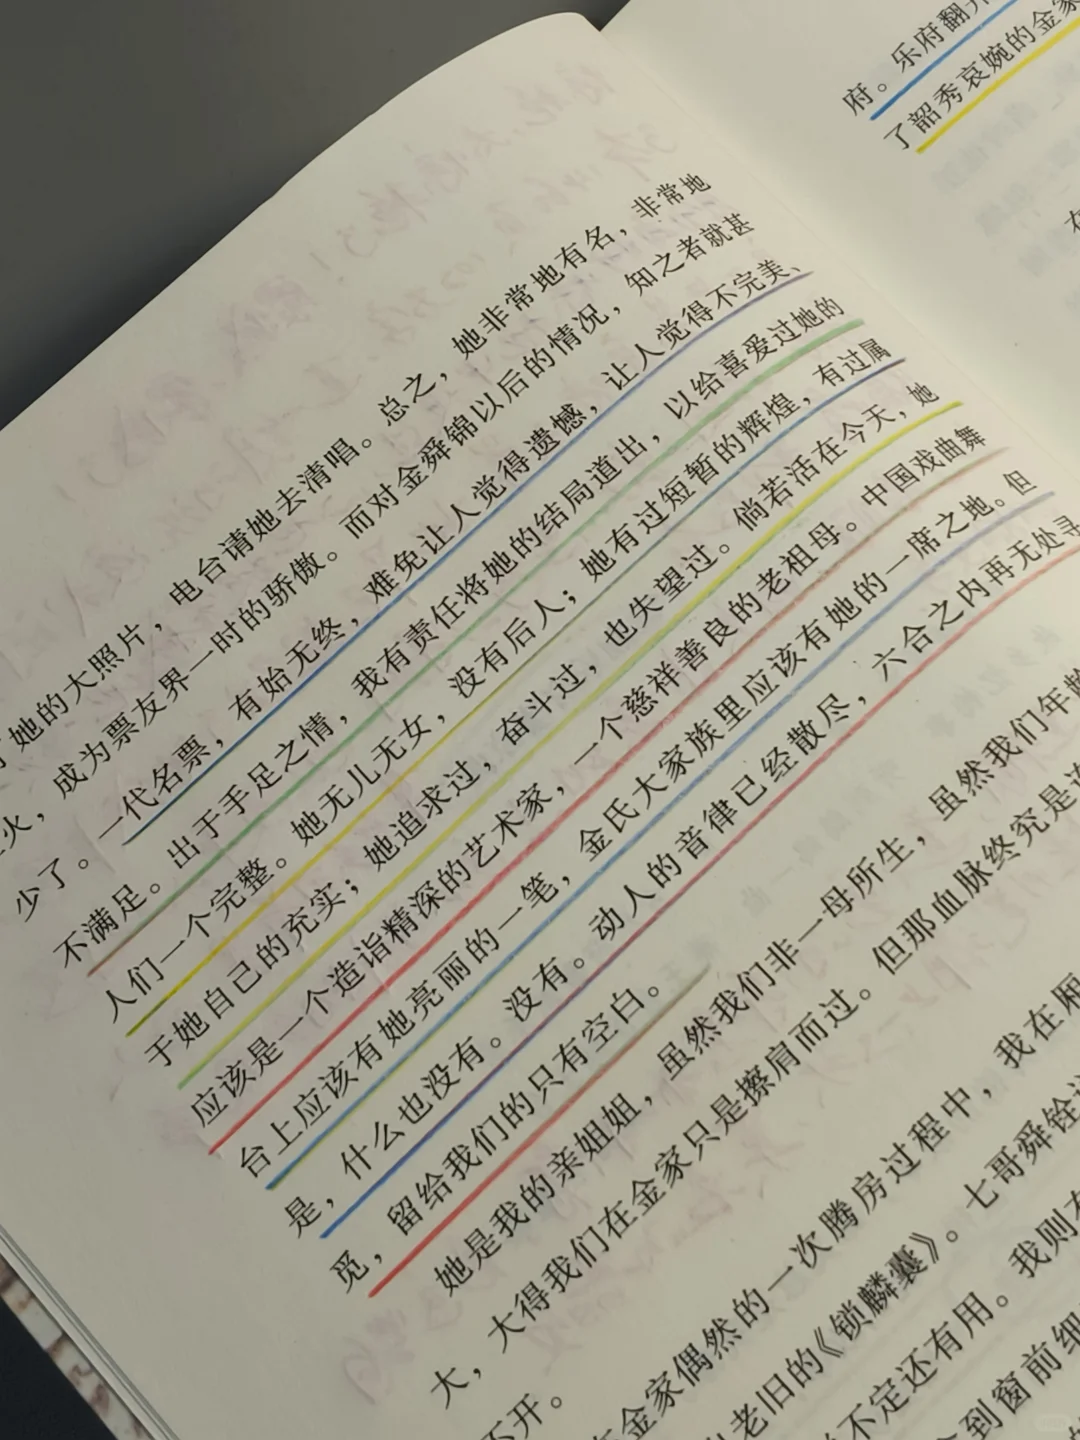 她的大照片，电台请她去清唱。总之，她非常地有名，非常地
火，成为票友界一时的骄傲。而对金舜锦以后的情况，知之者就甚
少了。一代名票，有始无终，难免让人觉得遗憾，让人觉得不完美、
不满足。出于手足之情，我有责任将她的结局道出，以给喜爱过她的
人们一个完整。她无儿无女，没有后人；她有过短暂的辉煌，有过属
于她自己的充实；她追求过，奋斗过，也失望过。倘若活在今天，她
应该是一个造诣精深的艺术家，一个慈祥善良的老祖母。中国戏曲舞
台上应该有她亮丽的一笔，金氏大家族里应该有她的一席之地。但
是，什么也没有。没有。动人的音律已经散尽，六合之内再无处寻
觅，留给我们的只有空白。
她是我的亲姐姐，虽然我们非一母所生，虽然我们年龄
大，大得我们在金家只是擦肩而过。但那血脉终究是连
不开。
在金家偶然的一次腾房过程中，我在厢
老旧的《锁麟囊》。七哥舜铨
不定还有用。我则
到窗前细
府。乐府翻
了韶秀哀婉的金家